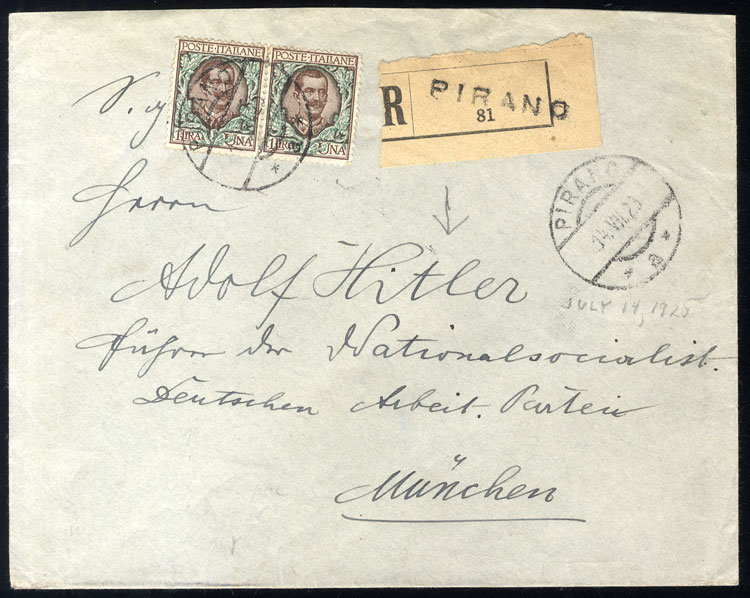 POSTE·ITALIANE POSTE·ITALIANE
1 LIRA UNA 1 LIRA UNA
R PIRANO
81
S. g.
PIRANO
14.VII.25
Herrn
Adolf Hitler
JULY 14, 1925
Führer der Nationalsocialist.
Deutschen Arbeit. Partei
München